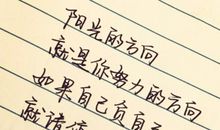 阳光的方向
就是你努力的方向
如果自己负自
就请你